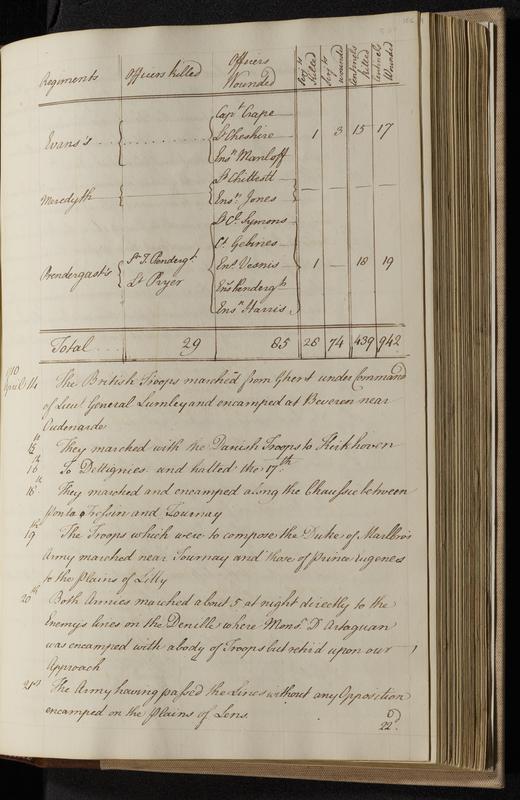 Regiments Officers killed Officers Wounded Serj.ts killed Serj.ts wounded Centinels killed Centinels Wounded
Cap.t Crape
Evans's L.t Cheshire 1 3 15 17
Ens.n Manloff
L.t Chillestt
Meredyth Ens.n Jones
L.t C.l Symons
C.t Gebines
Prendergast's S.r T. Prenderg.t Ens. Vesnis 1 18 19
L.t Pryer Ens Prenderg.t
Ens.n Harris
Total 29 85 26 74 439 942
1710
April 14 The British Troops marched from Ghent under Command
of Lieu.t General Lumley and encamped at Beveren near
Oudenarde
15th They marched with the Danish Troops to Kirkhoven
16th To Dettignies and halted the 17.th
18th They marched and encamped along the Chaussie between
Ponta Tressin and Tournay
19th The Troops which were to compose the Duke of Marlbro's
Army marched near Tournay and those of prince Eugenes
to the plains of Lilly
20th Both Armies marched about 5 at night directly to the
Enemys lines on the Denille where Mons.r D'Artaguan
was encamped with a body of Troops but retir'd upon our
Approach
21st The Army having passed the Lines without any Opposition
encamped on the Plains of Lens
22d.